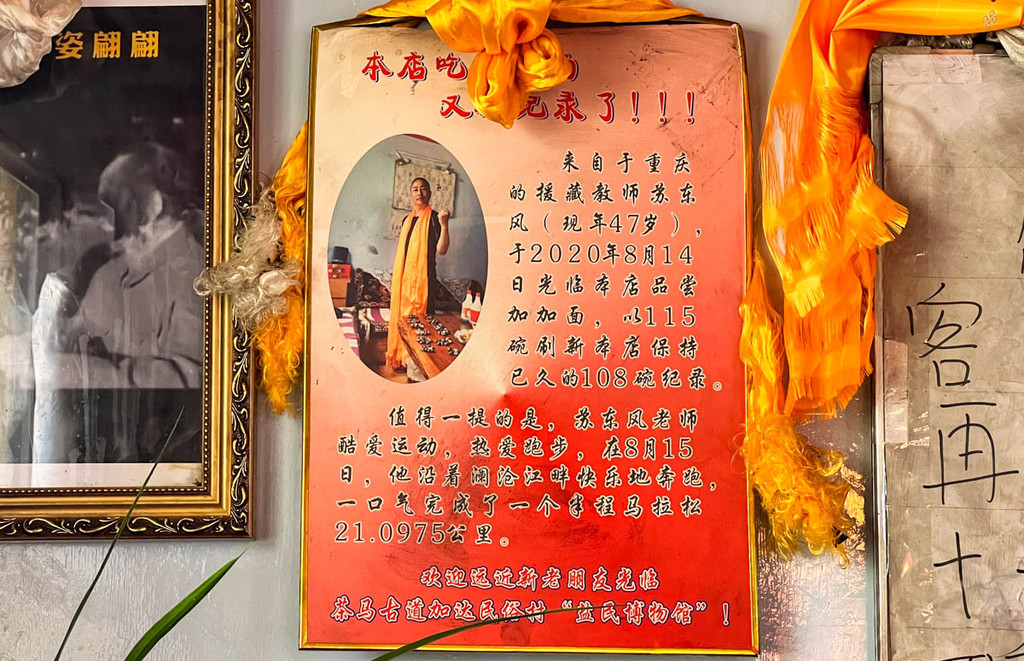 姿翩翩
本店吃
又 记录了！！！
来自于重庆
的援藏教师苏东
风（现年47岁），
于2020年8月14
日光临本店品尝
加加面，以115
碗刷新本店保持
已久的108碗纪录。
值得一提的是，苏东风老师
酷爱运动，热爱跑步，在8月15
日，他沿着澜沧江畔快乐地奔跑，
一口气完成了一个半程马拉松
21.0975公里。
欢迎远近新老朋友光临
茶马古道加达民俗村“盐民博物馆”！
客再十